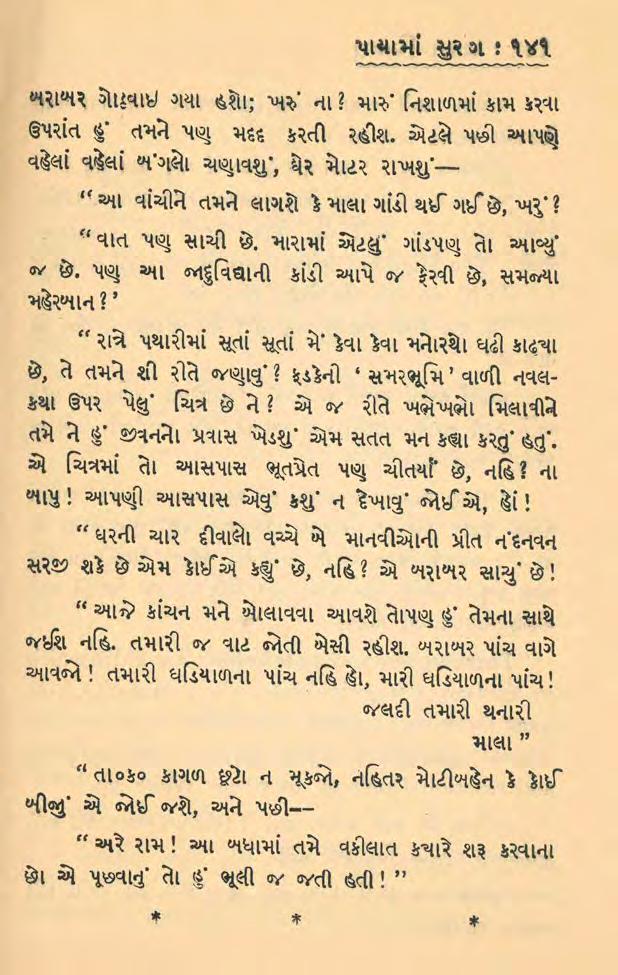 પાયામાં સુરગ : ૧૪૧
બરાબર ગોઠવાઇ ગયા હશો; ખરું ના? મારું નિશાળમાં કામ કરવા
ઉપરાંત હું તમને પણ મદદ કરતી રહીશ. એટલે પછી આપણે
વહેલાં વહેલાં બંગલો ચણાવશું, ઘેર મોટર રાખશું—
“આ વાંચીને તમને લાગશે કે માલા ગાંડી થઈ ગઈ છે, ખરું?
“વાત પણ સાચી છે. મારામાં એટલું ગાંડપણ તો આવ્યું
જ છે. પણ આ જાદુવિદ્યાની કાંડી આપે જ ફેરવી છે, સમજ્યા
મહેરબાન?’
“રાત્રે પથારીમાં સૂતાં સૂતાં મેં કેવા કેવા મનોરથો ઘઢી કાઢ્યા
છે, તે તમને શી રીતે જણાવું? ફડકેની ‘સમરભૂમિ’ વાળી નવલ-
કથા ઉપર પેલું ચિત્ર છે ને? એ જ રીતે ખભેખભો મિલાવીને
તમે ને હું જીવનનો પ્રવાસ ખેડશું એમ સતત મન કહ્યા કરતું હતું.
એ ચિત્રમાં તો આસપાસ ભૂતપ્રેત પણ ચીતર્યાં છે, નહિ? ના
બાપુ! આપણી આસપાસ એવું કશું ન દેખાવું જોઈએ, હોં!
“ઘરની ચાર દીવાલો વચ્ચે બે માનવીઓની પ્રીત નંદનવન
સરજી શકે છે એમ કોઈએ કહ્યું છે, નહિ? એ બરાબર સાચું છે!
“આજે કાંચન મને બોલાવવા આવશે તોપણ હું તેમના સાથે
જઇશ નહિ. તમારી જ વાટ જોતી બેસી રહીશ. બરાબર પાંચ વાગે
આવજો! તમારી ઘડિયાળના પાંચ નહિ હો, મારી ઘડિયાળના પાંચ!
જલદી તમારી થનારી
માલા”
“તા૦ક૦ કાગળ છૂટો ન મૂકજો, નહિતર મોટીબહેન કે કોઈ
બીજું એ જોઈ જશે, અને પછી--
“અરે રામ! આ બધામાં તમે વકીલાત કયારે શરૂ કરવાના
છો એ પૂછવાનું તો હું ભૂલી જ જતી હતી!”
* * *